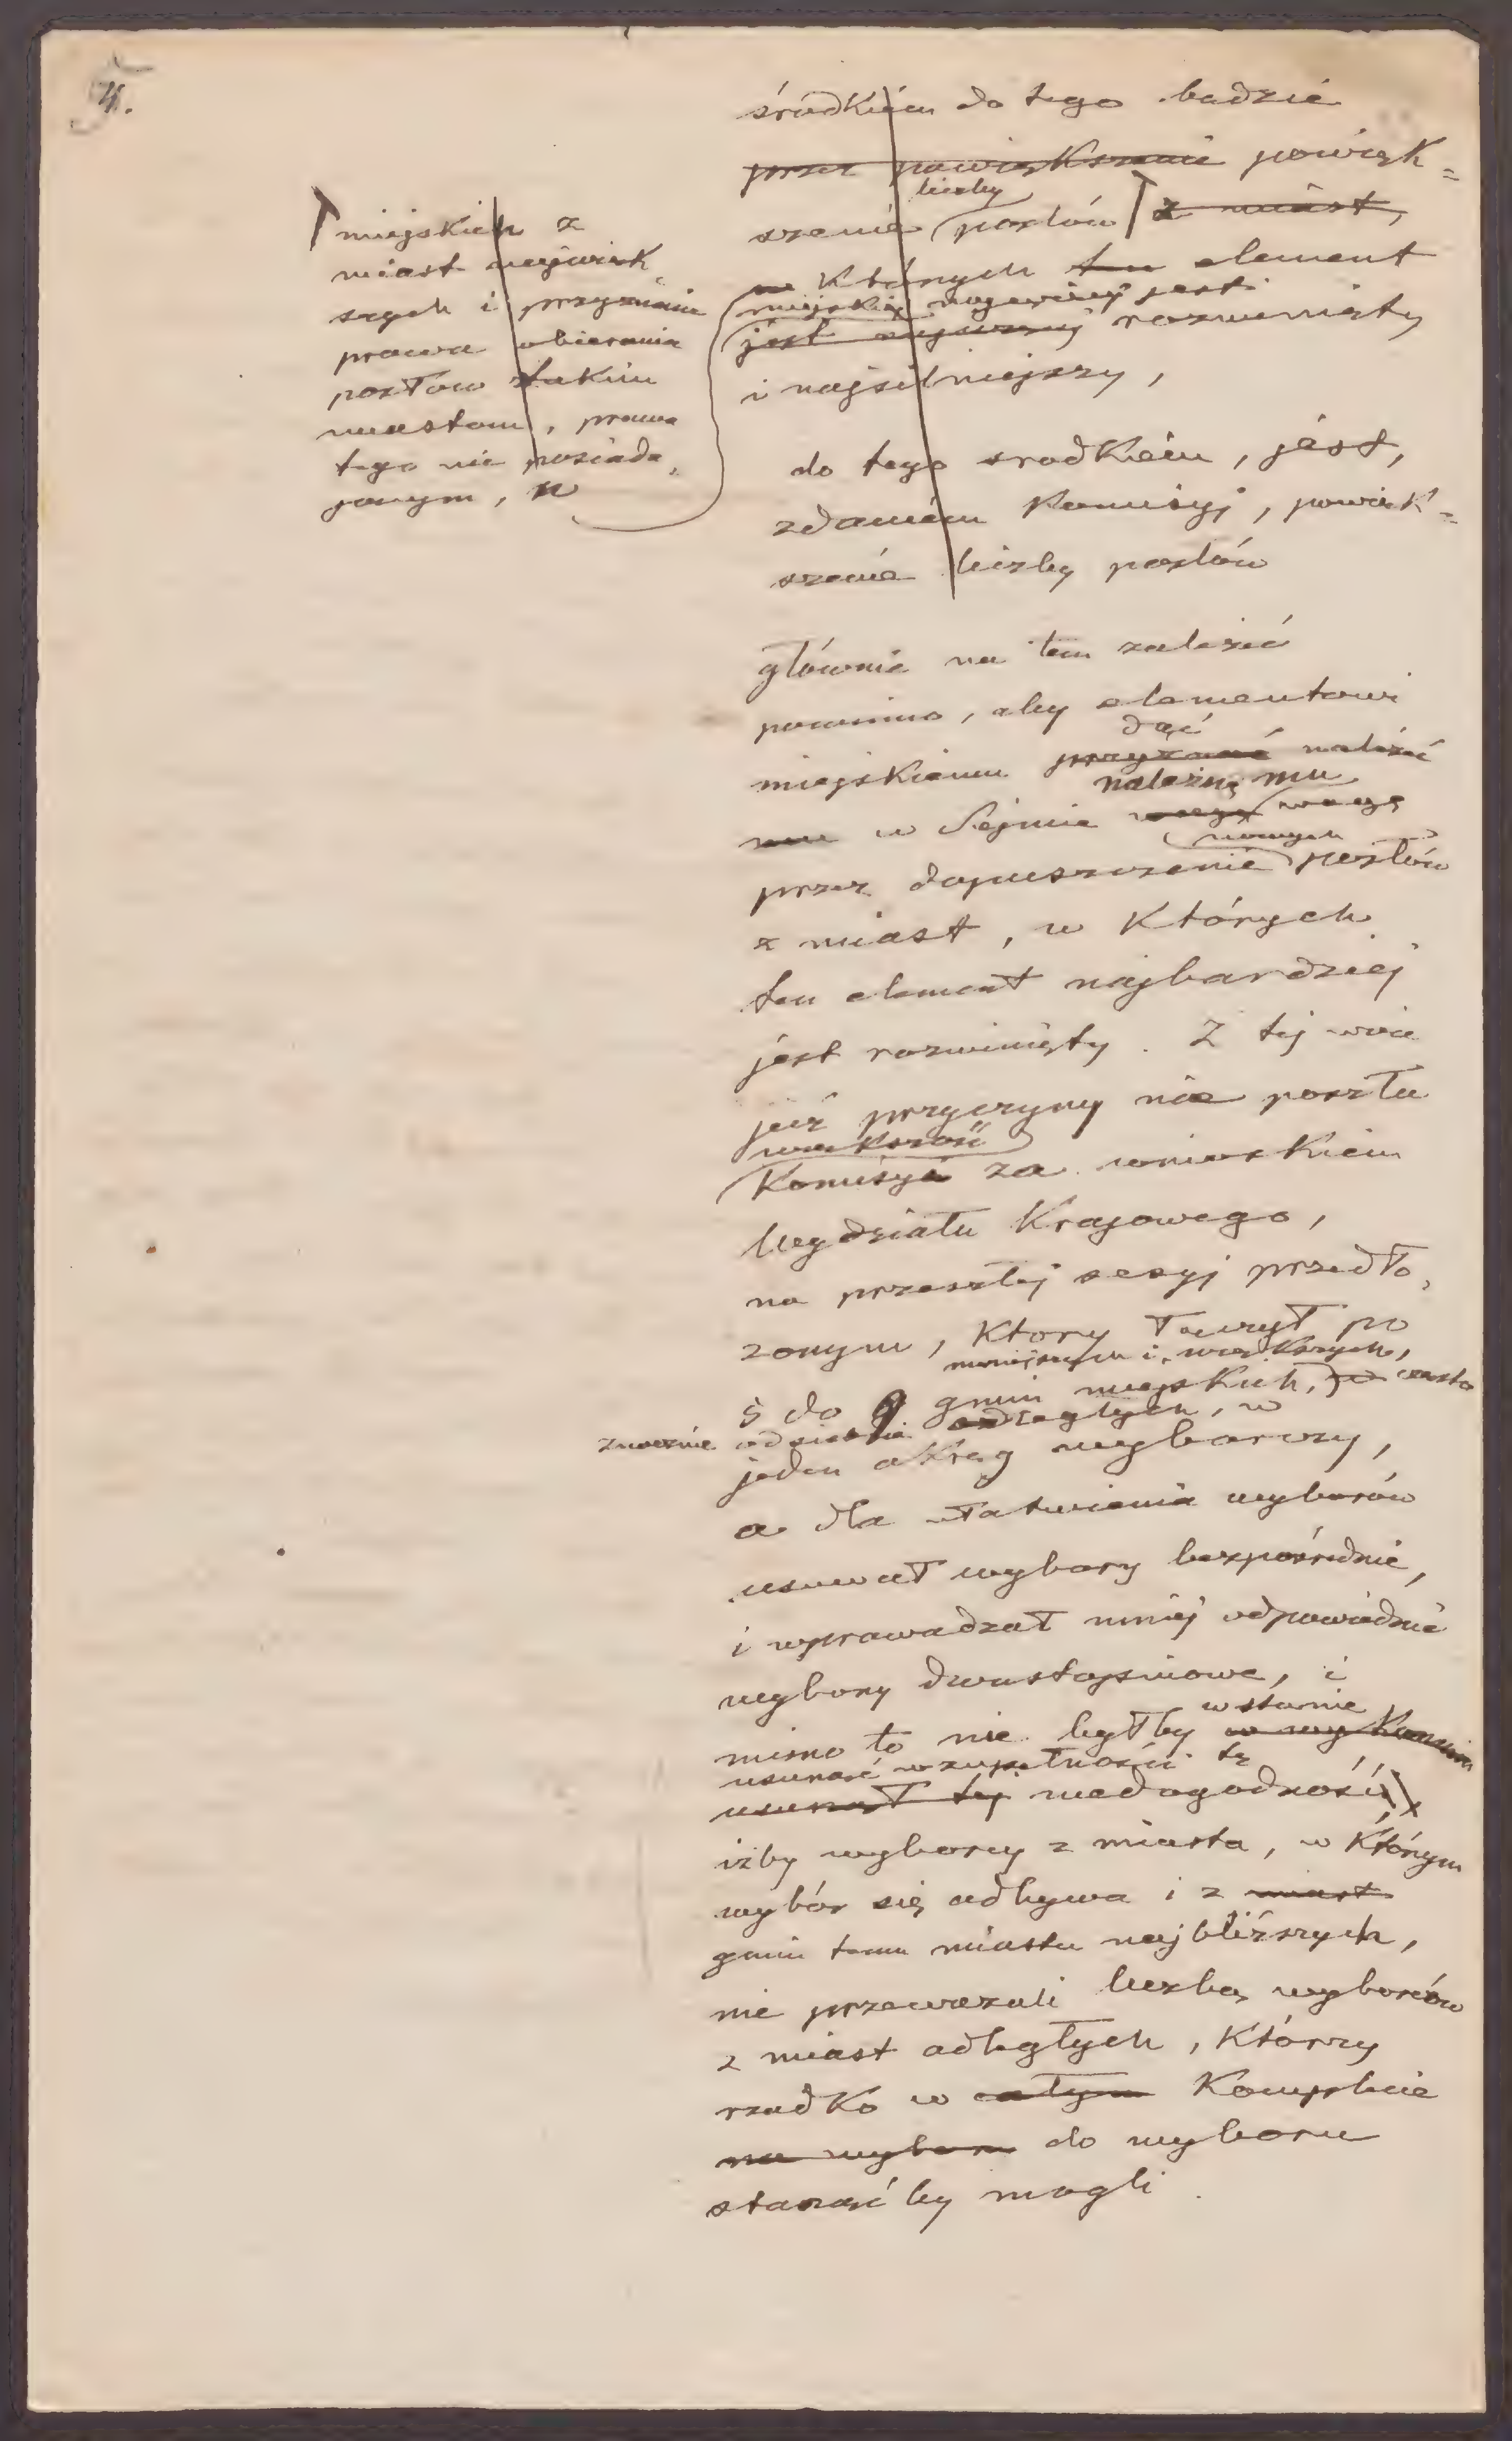 4.
środkiem do tego będzie
przez powiększenie powięk=
liczby
szenie posłów z miast,
w których ten element
miejski najwięcej jest
jest najwięcej rozwinięty
i najsilniejszy,
miejskich z
miast najwięk-
szych i przyznanie
prawa obierania
posłów takim
miastom, prawa
tego nie posiada-
jącym, w
do tego srodkiem, jest,
zdaniem Komisyj, powięk=
szenie liczby posłów
głównie na tem zależeć
powinno, aby elementowi
dać
miejskiemu przyznać należeć
należną mu
mu w Sejmie wagę wagę
nowych
przez dopuszczenie posłów
z miast, w których
ten element najbardziej
jest rozwinięty. Z tej więc
już przyczyny nie poszła
większość
Komisyi za wnioskiem
Wydziału Krajowego,
na przeszłej sesyj przedło-
żonym, który łączył po
mniejszych i większych,
5 do 9 gmin miejskich, często
znacznie od siebie odległych, w
jeden okręg wyborczy,
a dla ułatwienia wyborów
usuwał wybory bezpośrednie,
i wprowadzał mniej odpowiednie
wybory dwustopniowe, i
w stanie
mimo to nie byłby
usunąć w zupełności tę
usunął tej niedogodność,
iżby wyborcy z miasta, w którym
wybór się odbywa i z miast
gmin temu miastu najbliższych,
nie przeważali liczbą wyborców
z miast odległych, którzy
rzadko w całym Komplecie
na wybor do wyboru
stanąć by mogli.